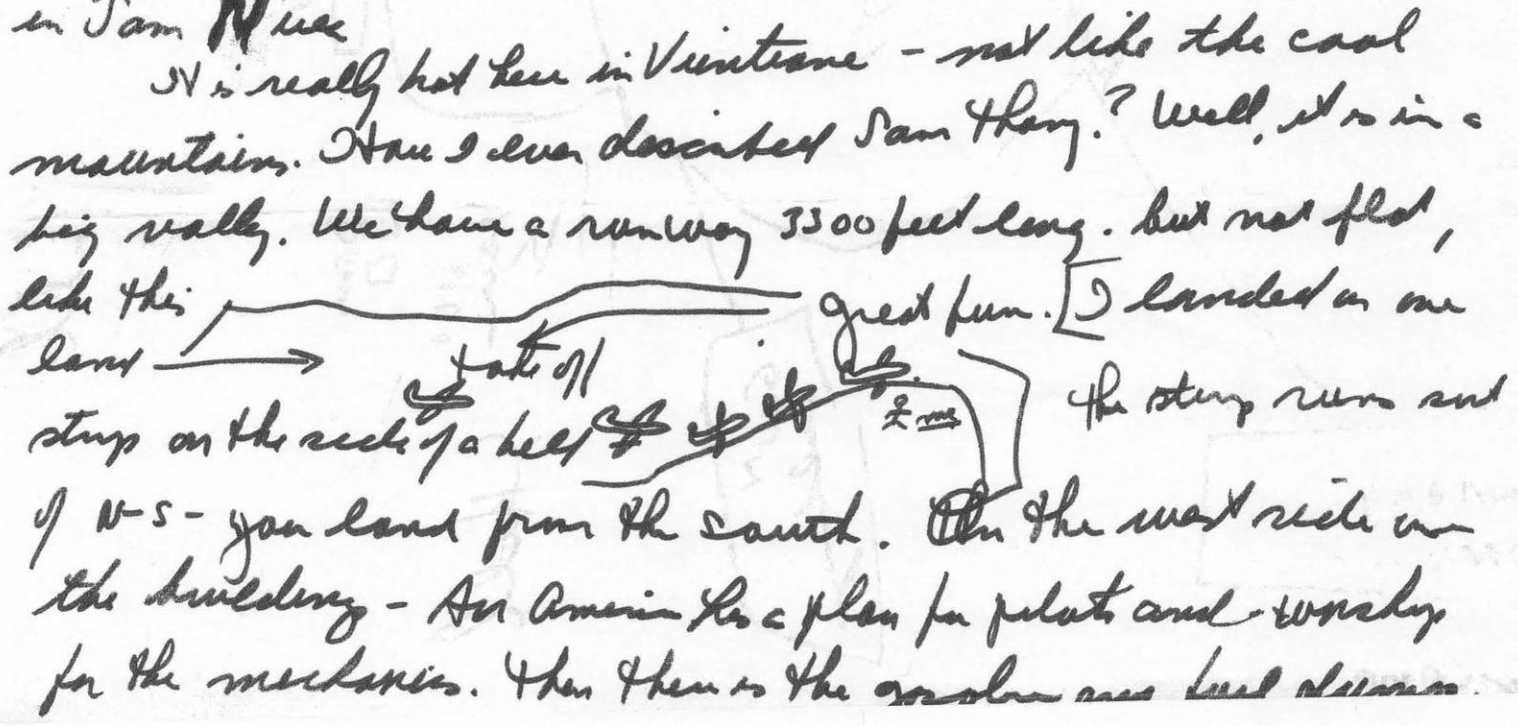 in Sam Nuea
It is really hot here in Vientiane - not like the cool
mountains. Have I ever described Sam Thong? Well, it is in a
big valley. We have a runway 3300 feet long. but not flat,
like this great fun. [I landed on one
land → take off
£ me the strip runs sort
strip on the side of a hill
of N-S - you land from the south. On the west side are
the buildings - Air America has a place for pilots and workshop
for the mechanics. Then there is the gasoline and fuel drums.